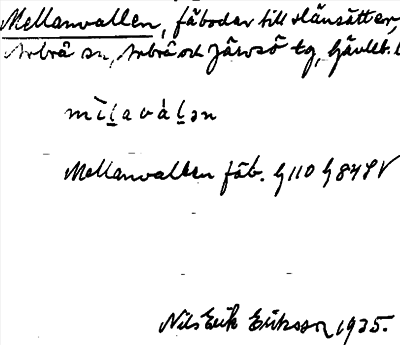 Mellanvallen, fäbodar till Hänsätter,
Arbrå sn, Arbrå och Järvsö tg, Gävleb. l
mìḻavàḻən
Mellanvallen fäb. G110 G84SV
Nils Erik Eriksson 1935.